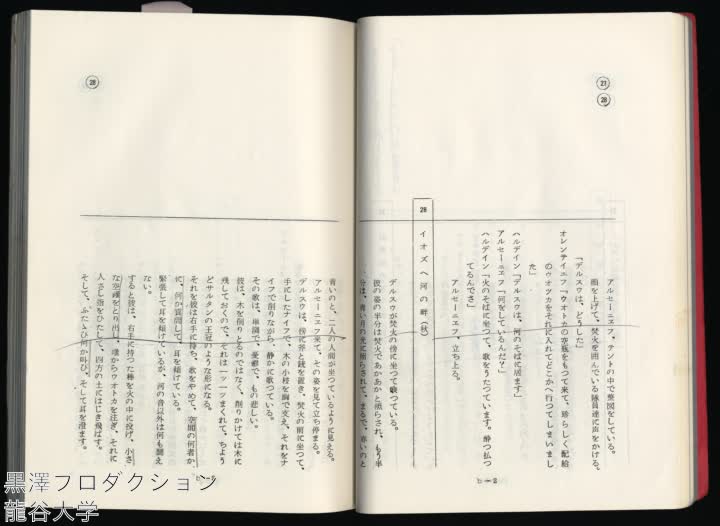 27
28
アルセーニエフ、テントの中で製図をしている。
顔を上げて、焚火を囲んでいる隊員達に声をかける。
「デルスウは、どうした」
オレンテイエフ「ウオトカの空瓶をもつて来て、珍らしく配給
のウオツカをそれに入れてどこかへ行つてしまいまし
た」
ハルデイン「デルスウは、河のそばに居ます」
アルセーニエフ「何をしているんだ？」
ハルデイン「火のそばに坐つて、歌をうたつています。酔つ払つ
てるんでさ」
アルセーニエフ、立ち上る。
28 イオズヘ河の畔（秋）
デルスウが焚火の傍に坐つて歌つている。
彼の姿の半分は焚火であかあかと照らされ、もう半
分は、青い月の光に照らされて、まるで、赤いのと
28
青いのと、二人の人間が坐つているように見える。
アルセーニエフ来て、その姿を見て立ち停まる。
デルスウは、傍に斧と銃を置き、焚火の前に坐つて、
手にしたナイフで、木の小枝を胸で支え、それをナ
イフで削りながら、静かに歌つている。
その歌は、単調で、憂鬱で、もの悲しい。
彼は、木を削りとるのではなく、削りかけては木に
残しておくので、それは一ツ一ツまくれて、ちよう
どサルタンの王冠のような形になる。
それを彼は右手に持ち、歌をやめて、空間の何者か
に、何か質問して、耳を傾けている。
緊張して耳を傾けているが、河の音以外は何も聞え
ない。
すると彼は、右手に持つた棒を火の中に投げ、小さ
な空瓶をとり出し、壜からウオトカを注ぎ、それに
人さし指をひたして、四方の土にはじき飛ばす。
そして、ふたゝび何か叫び、そして耳を澄ます。
黒澤プロダクション
龍谷大学